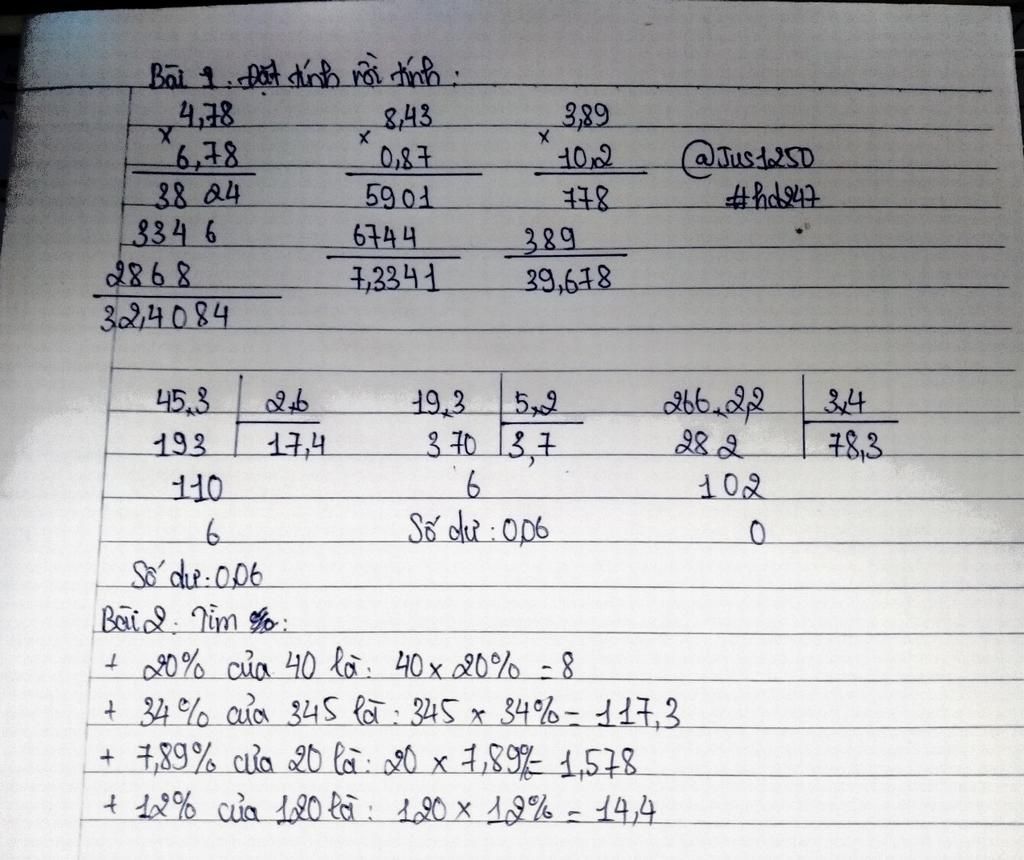 Bài 1. Đặt tính rồi tính:
4,78 8,43 3,89
× × ×
6,78 0,87 10,2 @Jus1250
38 24 5901 778 #hd247
334 6 6744 389
2868 7,3341 39,678
32,4084
45,3 2,6 19,3 5,2 266,22 3,4
193 17,4 3 70 3,7 28 2 78,3
110 6 102
6 Số dư: 0,06 0
Số dư: 0,06
Bài 2. Tìm %:
+ 20% của 40 là: 40 × 20% = 8
+ 34% của 345 là: 345 × 34% = 117,3
+ 7,89% của 20 là: 20 × 7,89% = 1,578
+ 12% của 120 là: 120 × 12% = 14,4